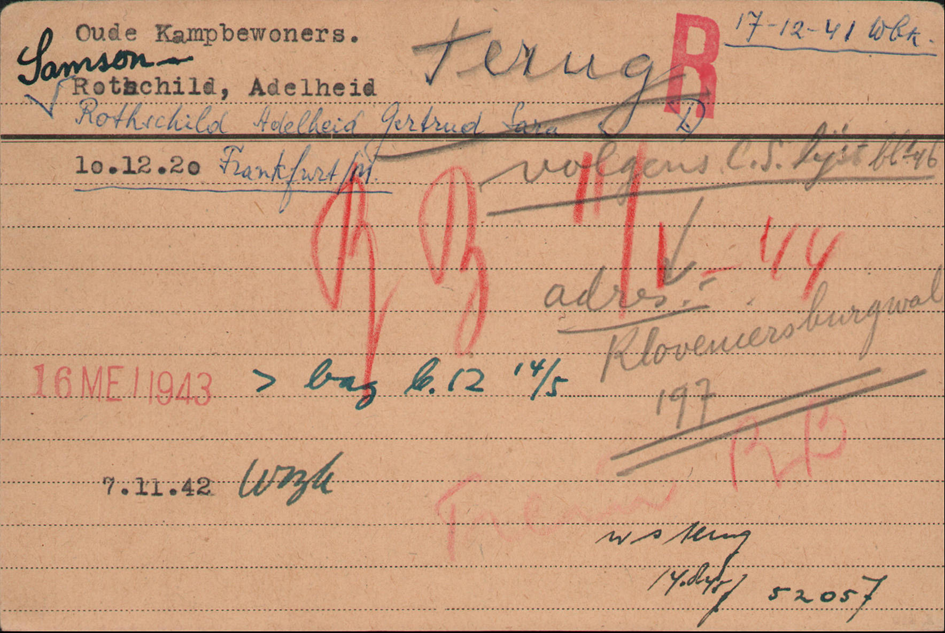 Oude Kampbewoners.
terug R 17-12-41 Wbk.
Samson
Rothschild, Adelheid
Rothschild Adelheid Gertrud Sara
10.12.20 Frankfurt/M.
volgens C.S. lijst blz 46
11/1-44
adres:
Kloveniersburgwal
197
16 MEI 1943 > b. 12 14/5
7.11.42 Wbzk
BB
52057